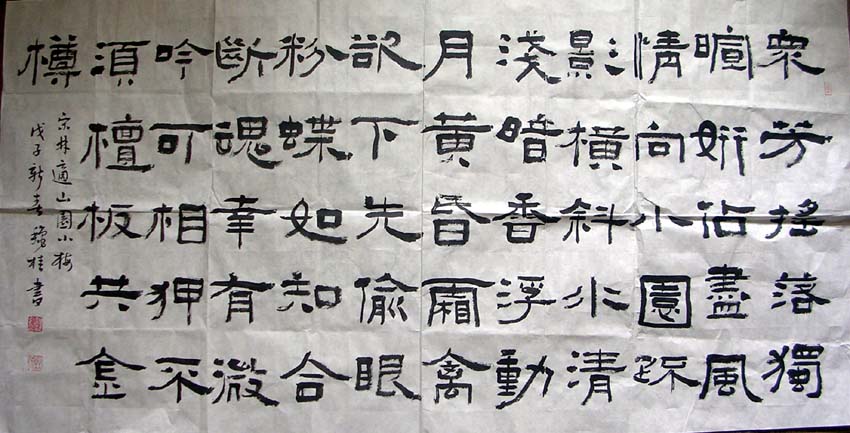 衆芳搖落獨
暄妍佔盡風
情向小園疎
影橫斜水清
淺暗香浮動
月黃昏霜禽
欲下先偷眼
粉蝶如知合
斷魂幸有微
吟可相狎不
須檀板共金
樽
宋林逋山園小梅
戊子新春桂書